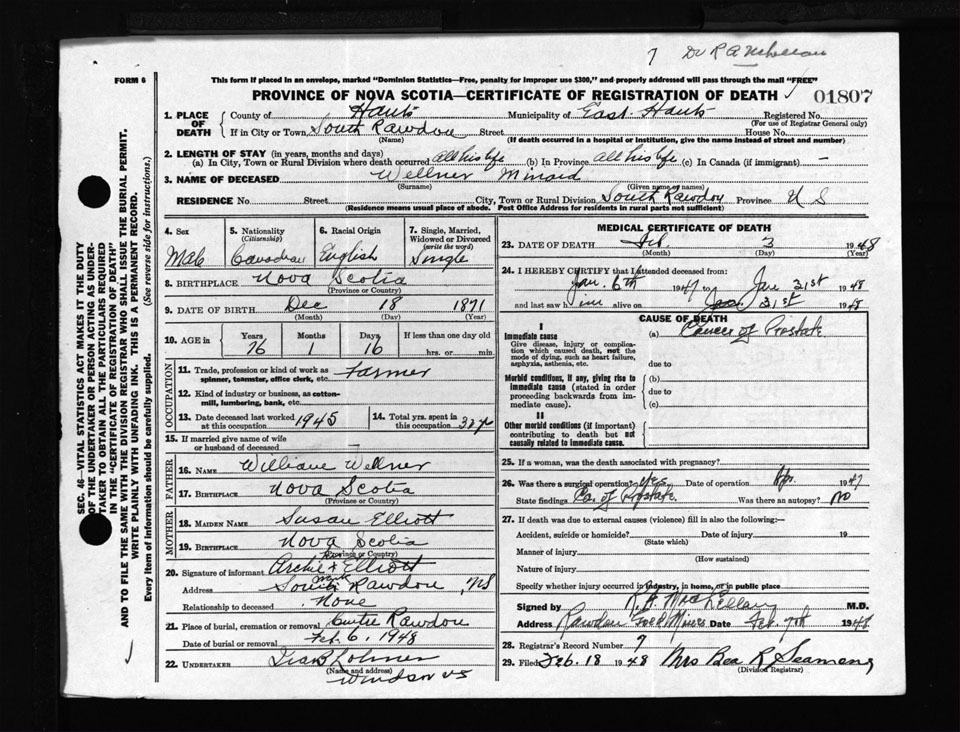 7 Dr R A McLellan
FORM 6
This form if placed in an envelope, marked "Dominion Statistics—Free, penalty for improper use $300," and properly addressed will pass through the mail "FREE"
PROVINCE OF NOVA SCOTIA—CERTIFICATE OF REGISTRATION OF DEATH
01807
1. PLACE OF DEATH
County of Hants Municipality of East Hants Registered No.
(For use of Registrar General only)
If in City or Town, South Rawdon Street House No.
(Name) (If death occurred in a hospital or institution, give the name instead of street and number)
2. LENGTH OF STAY (in years, months and days)
(a) In City, Town or Rural Division where death occurred all his life (b) In Province all his life (c) In Canada (if immigrant) —
3. NAME OF DECEASED Wellner Minard
(Surname) (Given name or names)
RESIDENCE No. Street City, Town or Rural Division South Rawdon Province N S
(Residence means usual place of abode. Post Office Address for residents in rural parts not sufficient)
4. Sex Male
5. Nationality (Citizenship) Canadian
6. Racial Origin English
7. Single, Married, Widowed or Divorced (write the word) Single
8. BIRTHPLACE Nova Scotia
(Province or Country)
9. DATE OF BIRTH Dec 18 1871
(Month) (Day) (Year)
10. AGE in Years 76 Months 1 Days 16 If less than one day old hrs. or min.
OCCUPATION
11. Trade, profession or kind of work as spinner, teamster, office clerk, etc. Farmer
12. Kind of industry or business, as cotton-mill, lumbering, bank, etc.
13. Date deceased last worked at this occupation 1945
14. Total yrs. spent in this occupation 32 yr
15. If married give name of wife or husband of deceased —
FATHER
16. NAME William Wellner
17. BIRTHPLACE Nova Scotia
(Province or Country)
MOTHER
18. MAIDEN NAME Susan Elliott
19. BIRTHPLACE Nova Scotia
(Province or Country)
20. Signature of informant Archie Elliott
Address South Rawdon, NS
Relationship to deceased None
21. Place of burial, cremation or removal Centre Rawdon
Date of burial or removal Feb 6, 1948
22. UNDERTAKER
(Name and address)
Windsor NS
MEDICAL CERTIFICATE OF DEATH
23. DATE OF DEATH Feb 3 1948
(Month) (Day) (Year)
24. I HEREBY CERTIFY that I attended deceased from:
Jan. 6th 1947 to Jan 31st 1948
and last saw him alive on Jan. 31st 1948
CAUSE OF DEATH
I
Immediate cause
Give disease, injury or complication which caused death, not the mode of dying, such as heart failure, asphyxia, asthenia, etc.
(a) Cancer of Prostate
due to
Morbid conditions, if any, giving rise to immediate cause (stated in order proceeding backwards from immediate cause).
(b)
due to
(c)
II
Other morbid conditions (if important) contributing to death but not causally related to immediate cause.
25. If a woman, was the death associated with pregnancy?
26. Was there a surgical operation? Yes Date of operation Apr. 1947
State findings Ca. of Prostate. Was there an autopsy? no
27. If death was due to external causes (violence) fill in also the following:—
Accident, suicide or homicide? Date of injury 19
(State which)
Manner of injury
(How sustained)
Nature of injury
Specify whether injury occurred in industry, in home, or in public place
Signed by R. A. MacLellan M.D.
Address Rawdon Gold Mines Date Feb. 7th 1948
28. Registrar's Record Number 7
29. Filed Feb. 18 1948 Mrs Bea R Seamens
(Division Registrar)
SEC. 46—VITAL STATISTICS ACT MAKES IT THE DUTY
OF THE UNDERTAKER OR PERSON ACTING AS UNDER-
TAKER TO OBTAIN ALL THE PARTICULARS REQUIRED
IN THE "CERTIFICATE OF REGISTRATION OF DEATH"
AND TO FILE THE SAME WITH THE DIVISION REGISTRAR WHO SHALL ISSUE THE BURIAL PERMIT.
WRITE PLAINLY WITH UNFADING INK. THIS IS A PERMANENT RECORD.
Every item of information should be carefully supplied. (See reverse side for instructions.)